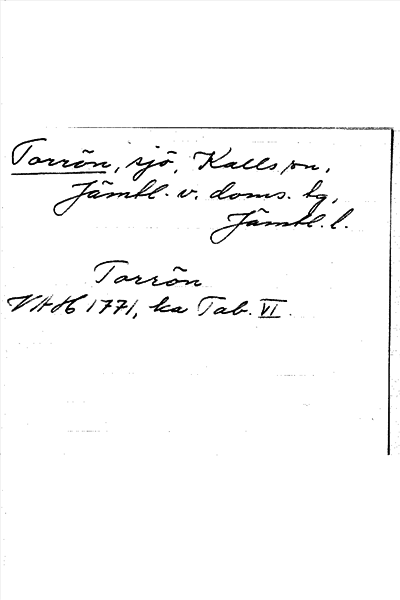 Torrön, sjö, Kalls sn,
Jämtl. v. doms. tg,
Jämtl. l.
Torrön
VAH 1771, ka Tab. VI.